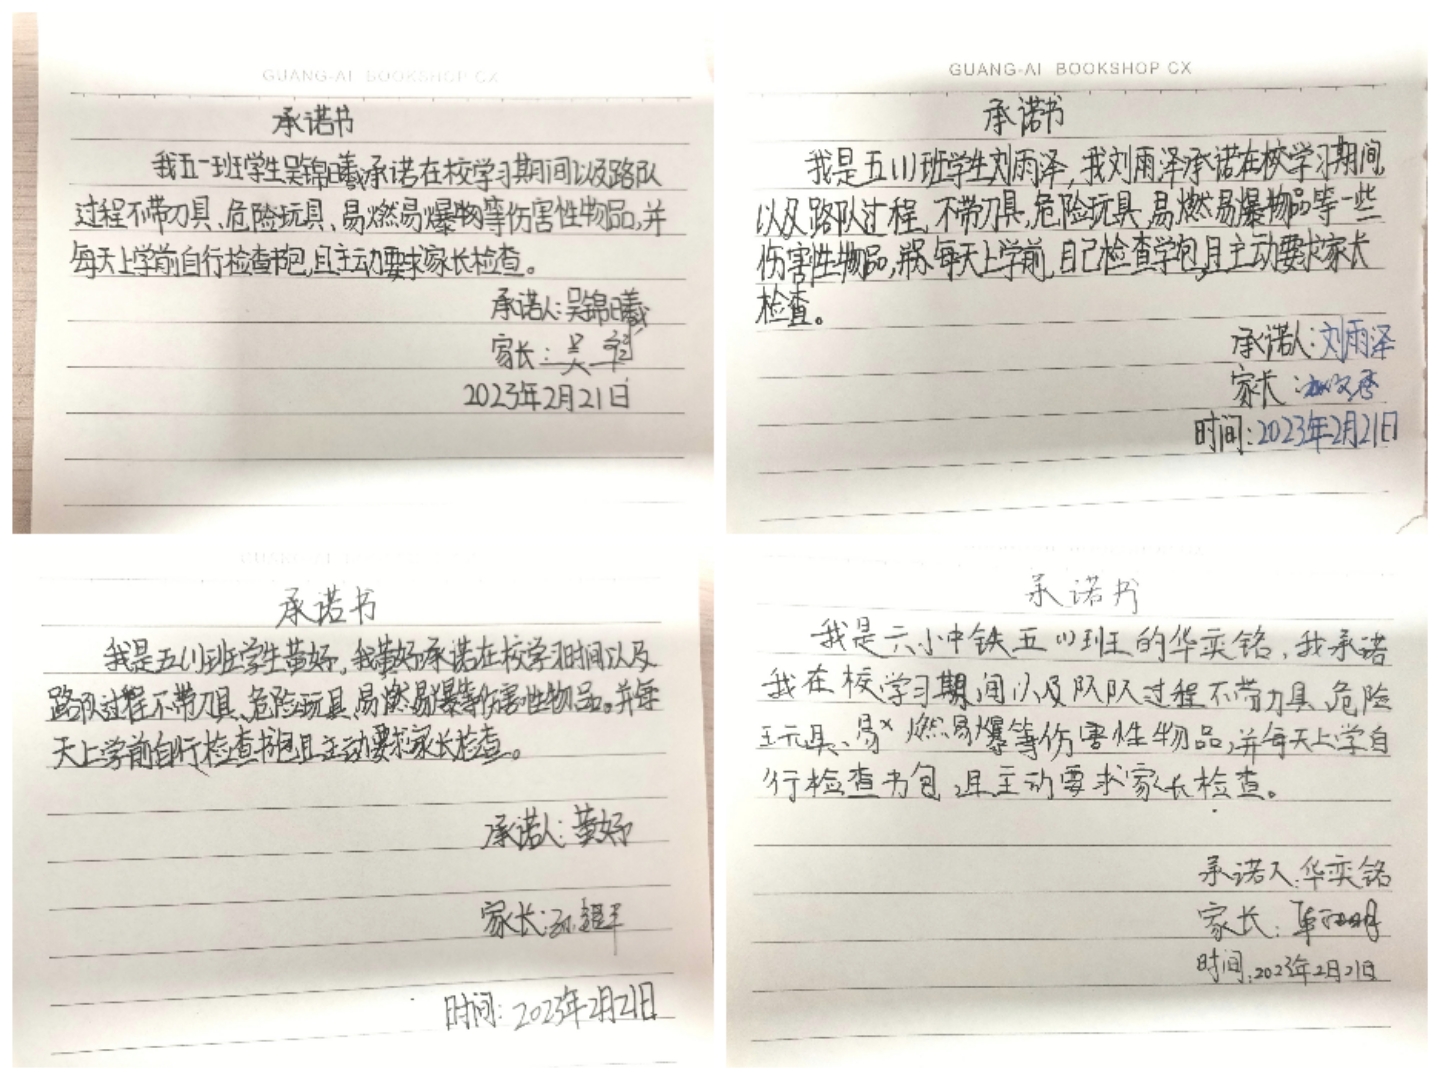 GUANG-AI BOOKSHOP CX
承诺书
我五一班学生吴锦曦承诺在校学习期间以及路队
过程不带刀具、危险玩具、易燃易爆物等伤害性物品,并
每天上学前自行检查书包,且主动要求家长检查。
承诺人:吴锦曦
家长:吴
2023年2月21日
GUANG-AI BOOKSHOP CX
承诺书
我是五(1)班学生刘雨泽,我刘雨泽承诺在校学习期间,
以及路队过程,不带刀具,危险玩具,易燃易爆物品等一些
伤害性物品,每天上学前,自己检查学包,且主动要求家长
检查。
承诺人:刘雨泽
家长:
时间:2023年2月21日
GUANG-AI
承诺书
我是五(1)班学生黄妤,我黄妤承诺在校学习时间以及
路队过程不带刀具、危险玩具、易燃易爆等伤害性物品。并每
天上学前自行检查书包且主动要求家长检查。
承诺人:黄妤
家长:
时间:2023年2月21日
承诺书
我是六小中铁五(1)班王的华奕铭,我承诺
我在校学习期间以及队队过程不带刀具、危险
玩具、易燃易爆等伤害性物品,并每天上学自
行检查书包,且主动要求家长检查。
承诺人:华奕铭
家长:
时间:2023年2月21日